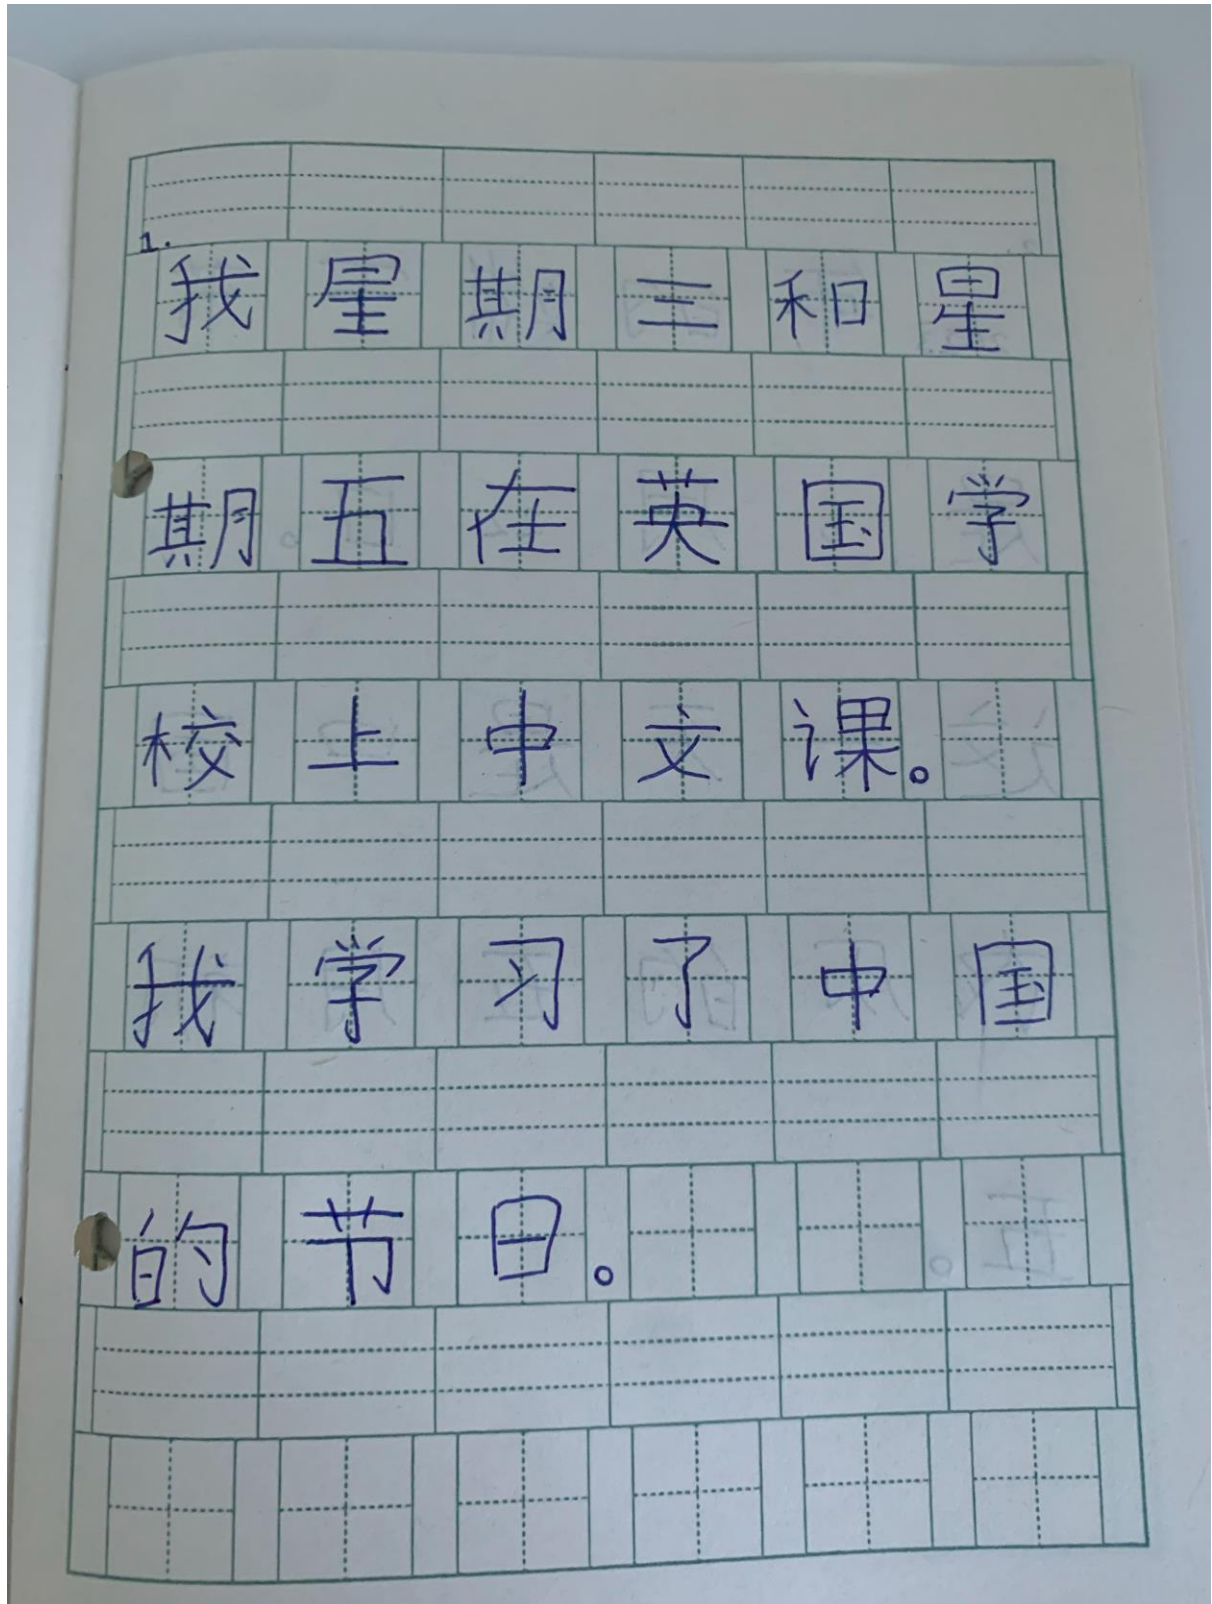 1.
我星期三和星
期五在英国学
校上中文课。
我学习了中国
的节日。